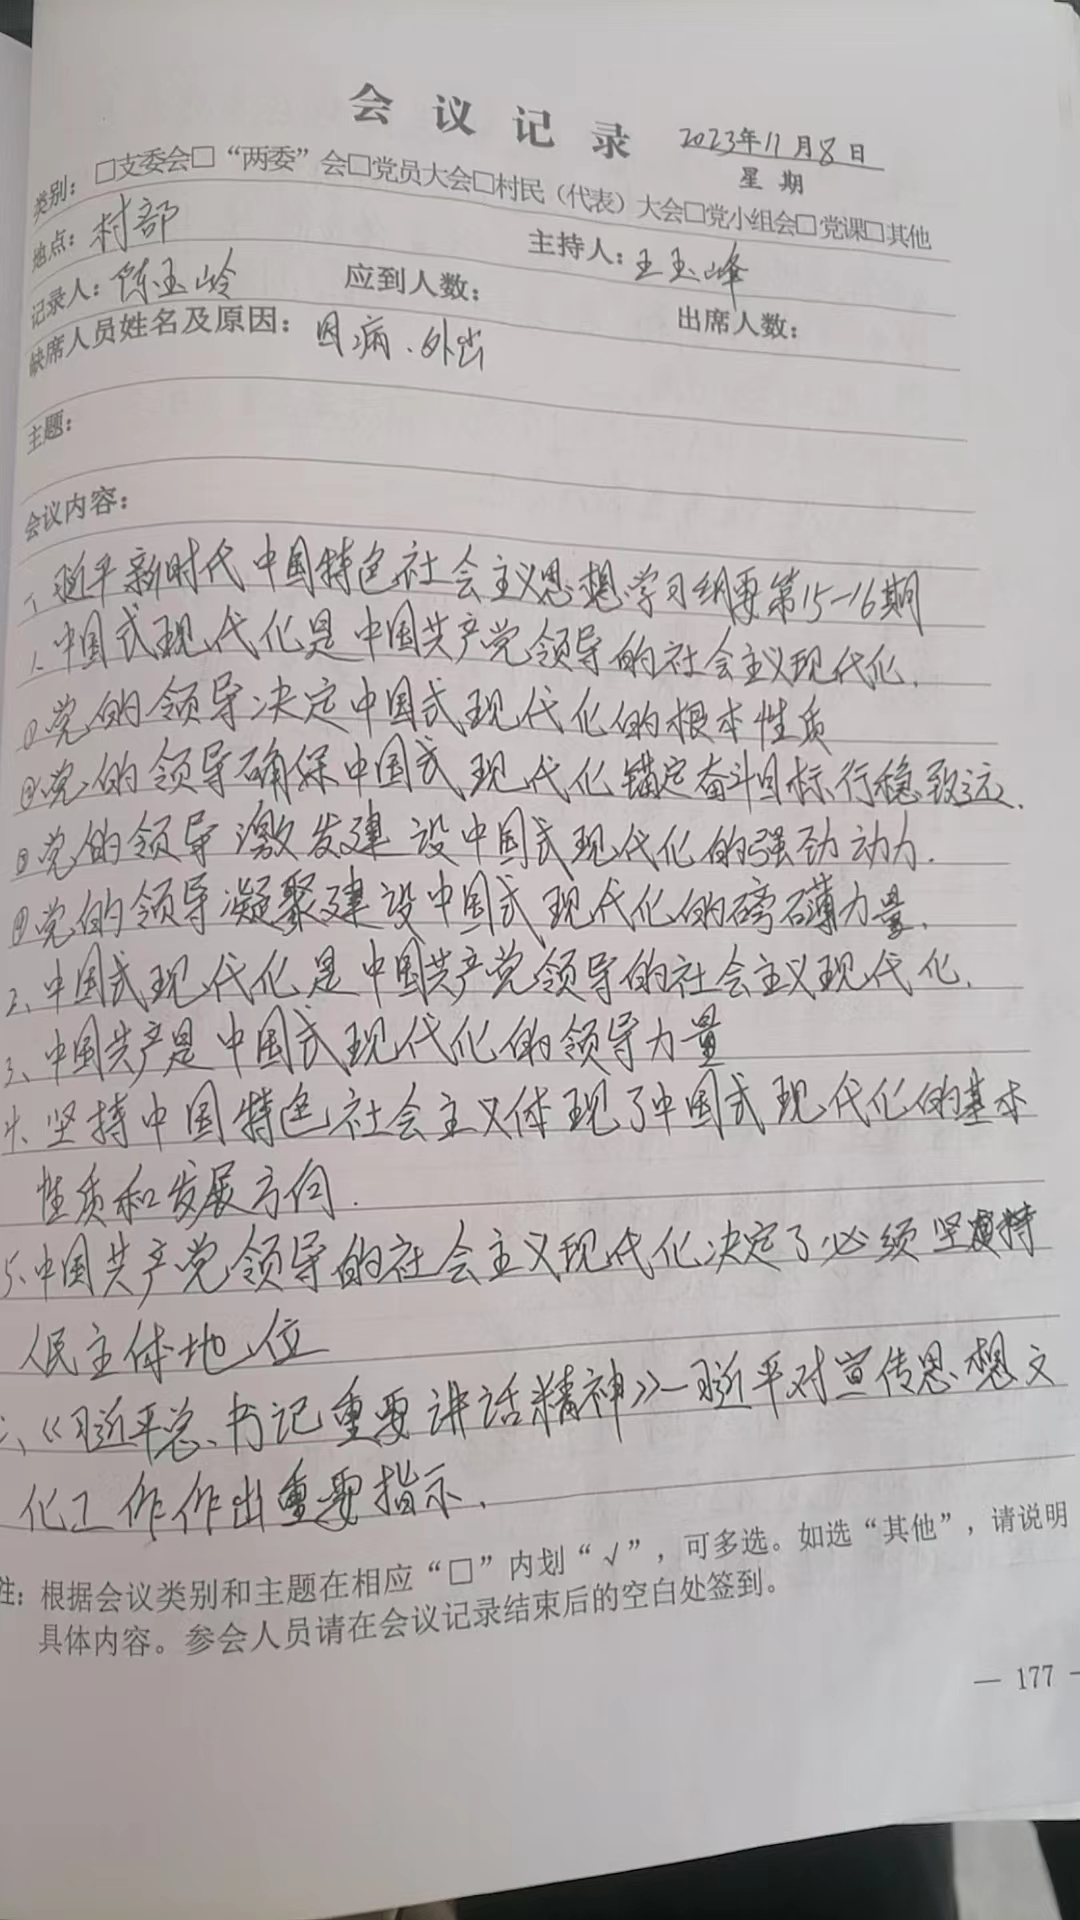 会议记录 2023年11月8日
星期
类别：□支委会□“两委”会□党员大会□村民（代表）大会□党小组会□党课□其他
地点：村部 主持人：王玉峰
记录人：陈玉岭 应到人数： 出席人数：
缺席人员姓名及原因：因病、外出
主题：
会议内容：
一、习近平新时代中国特色社会主义思想学习纲要第15-16期
1、中国式现代化是中国共产党领导的社会主义现代化.
①党的领导决定中国式现代化的根本性质
②党的领导确保中国式现代化锚定奋斗目标行稳致远.
③党的领导激发建设中国式现代化的强劲动力.
④党的领导凝聚建设中国式现代化的磅礴力量.
2、中国式现代化是中国共产党领导的社会主义现代化.
3、中国共产是中国式现代化的领导力量
4、坚持中国特色社会主义体现了中国式现代化的基本
性质和发展方向.
5、中国共产党领导的社会主义现代化决定了必须坚持
人民主体地位
二、《习近平总书记重要讲话精神》—习近平对宣传思想文
化工作作出重要指示.
注：根据会议类别和主题在相应“□”内划“√”，可多选。如选“其他”，请说明
具体内容。参会人员请在会议记录结束后的空白处签到。
— 177 —